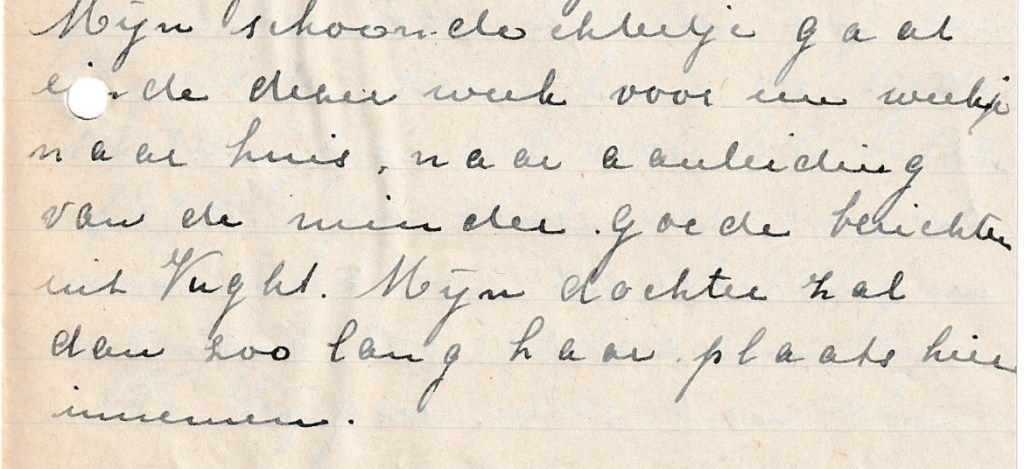 Mijn schoondochtertje gaat
einde dezer week voor een weekje
naar huis, naar aanleiding
van de minder goede berichten
uit Vught. Mijn dochter zal
dan zoo lang haar plaats hier
innemen.